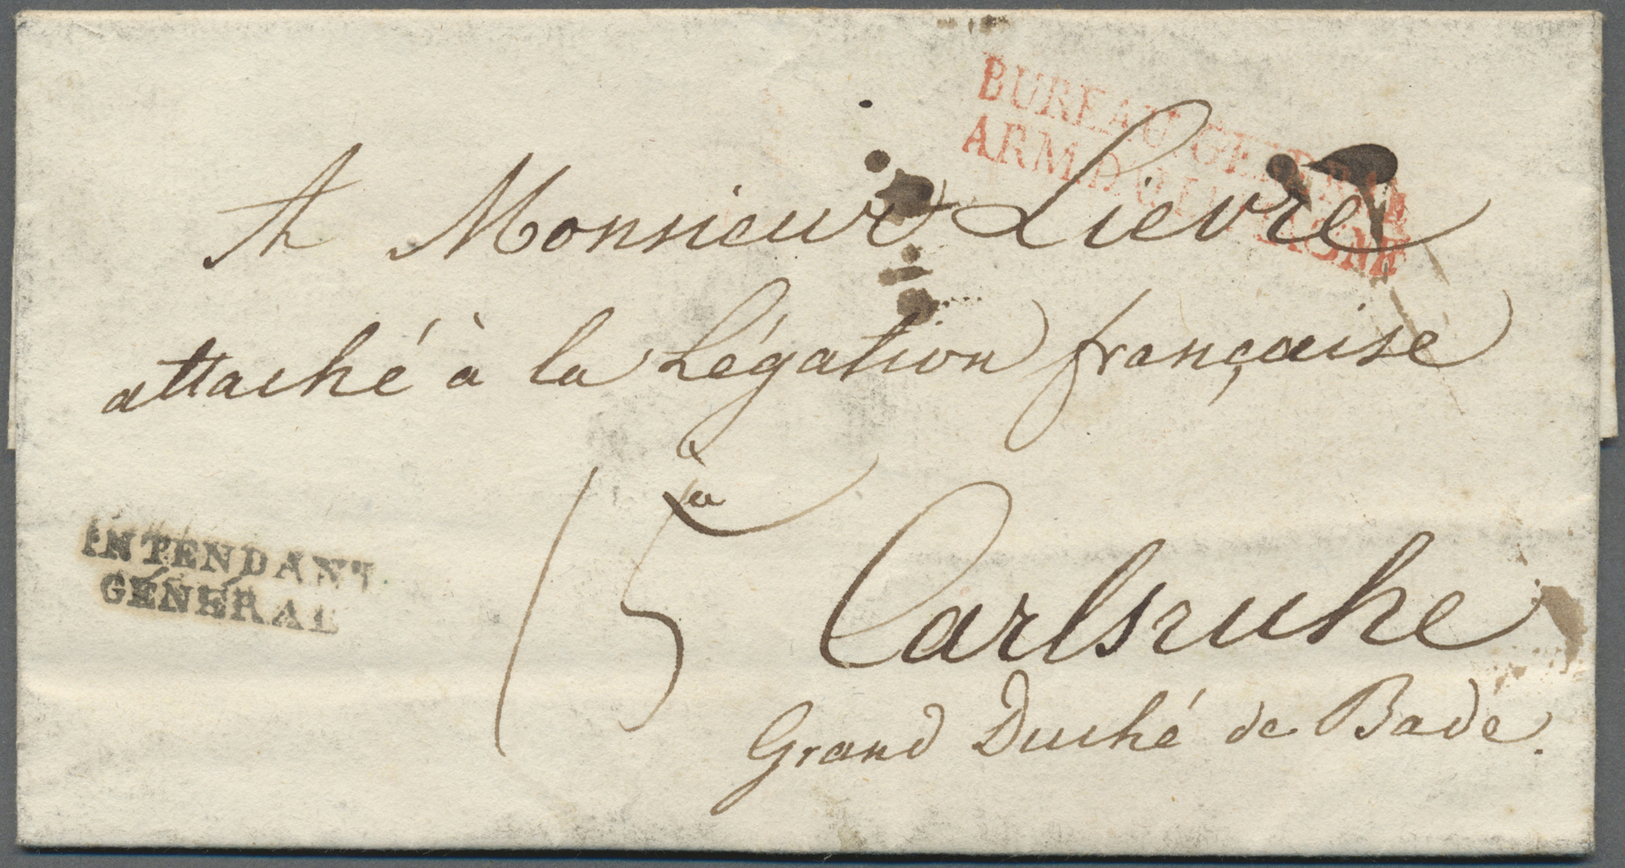 BUREAU GENERAL
ARM D'ALLEMAGNE
A Monsieur Lievre
attaché à la Légation française
à
15
Carlsruhe
Grand Duché de Bade.
INTENDANT
GÉNÉRAL